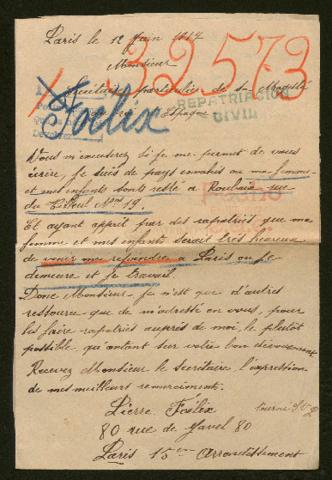 Paris le 12 Juin 1917
32573
Monsieur
Secrétaire particulier de sa Majesté
REPATRIACION
CIVIL
Espagne
Foëlix
Vous m'excuserez si je me permet de vous
écrire, je suis de pays envahis ou ma femme
et mes enfants sonts resté a Roubaix rue
du Tilleul Nro 19.
Et ayant appris par des rapatriés que ma
femme et mes enfants serait tres heureux
de venir me rejoindre a Paris ou je
demeure et je travail.
Donc Monsieur je n'est que d'autres
ressource que de m'adressé en vous, pour
les faire rapatriés auprès de moi, le plutôt
possible qu'antant sur votre bon
Recevez Monsieur le Secretaire l'expression
de mes meilleurs remerciments.
Pierre Foëlix
80 rue de Javel 80
Paris 15em Arrondissement